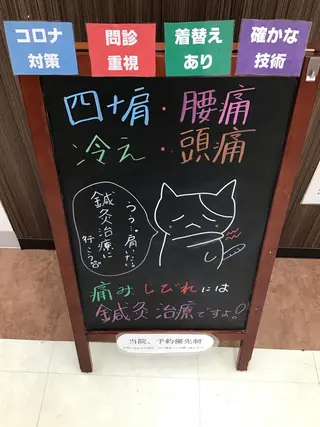 コロナ
対策
問診
重視
着替え
あり
確かな
技術
四十肩・腰痛
冷え・頭痛
うぅ…肩いたい
鍼灸治療に
行こうかな
痛み しびれには
鍼灸治療ですよ!
当院、予約優先制